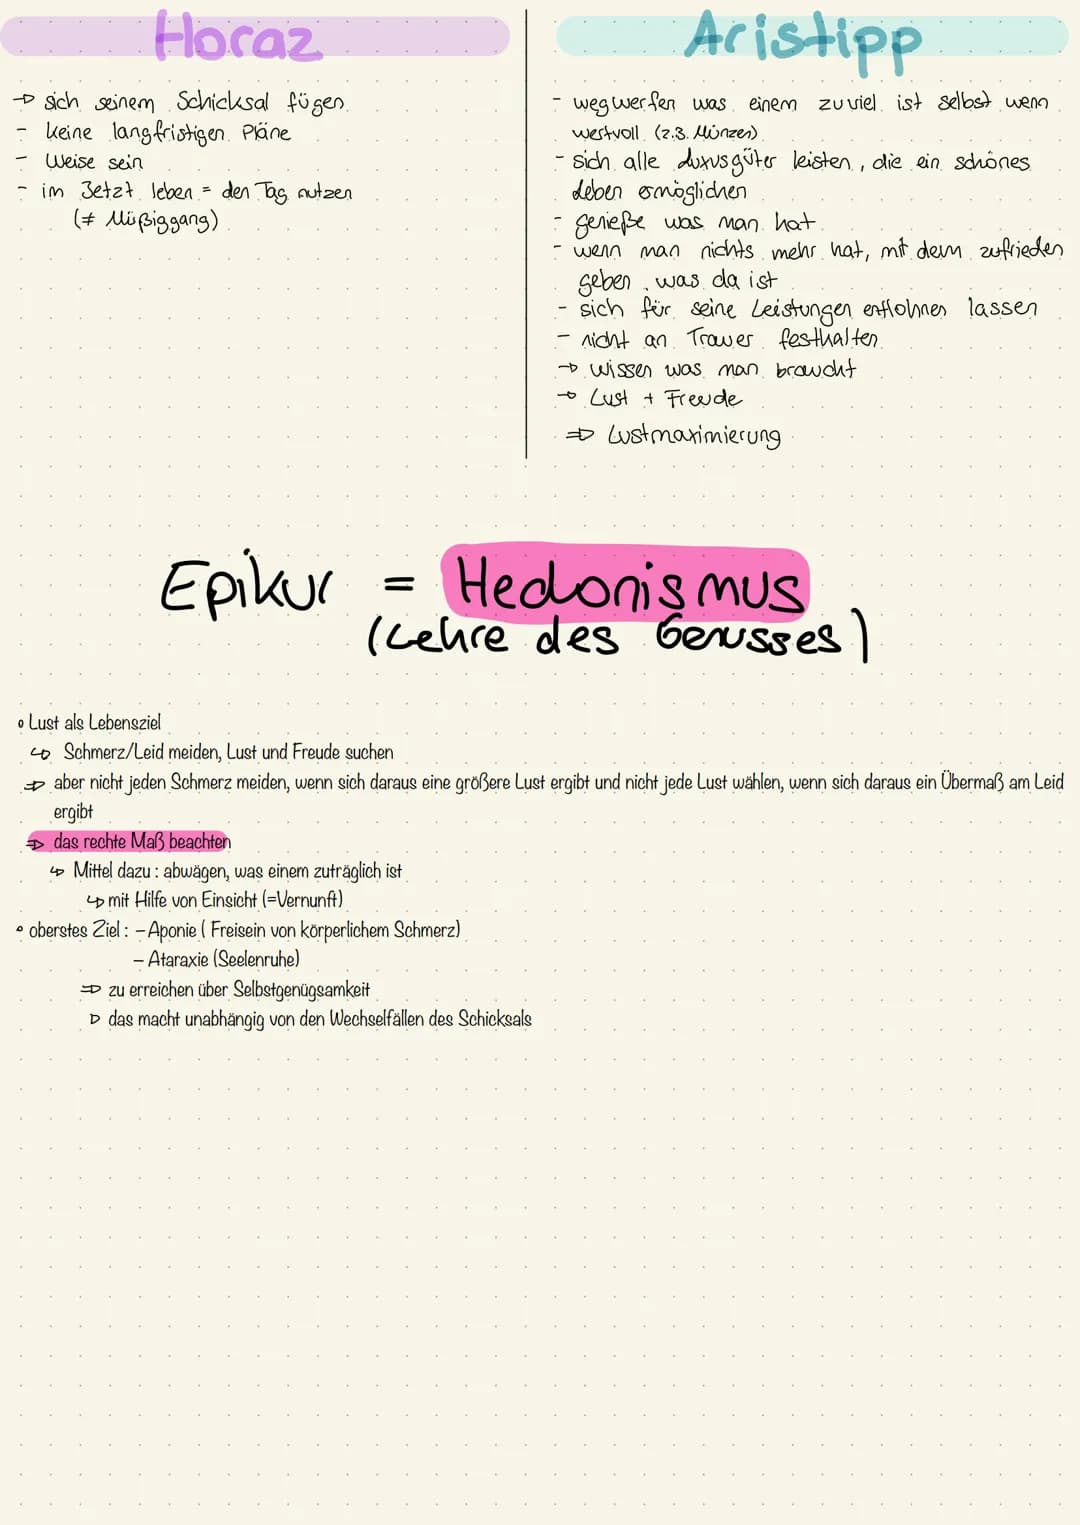 Horaz
→ sich seinem Schicksal fügen
- keine langfristigen Pläne
- Weise sein
- im Jetzt leben = den Tag nutzen
(≠ Müßiggang)
Aristipp
- wegwerfen was einem zuviel ist selbst wenn
wertvoll (z.B. Münzen)
- sich alle Luxusgüter leisten, die ein schönes
Leben ermöglichen
- genieße was man hat
- wenn man nichts mehr hat, mit dem zufrieden
geben, was da ist
- sich für seine Leistungen entlohnen lassen
- nicht an Trauer festhalten
→ wissen was man braucht
→ Lust + Freude
⇒ Lustmaximierung
Epikur = Hedonismus
(Lehre des Genusses)
• Lust als Lebensziel
↳ Schmerz/Leid meiden, Lust und Freude suchen
⇒ aber nicht jeden Schmerz meiden, wenn sich daraus eine größere Lust ergibt und nicht jede Lust wählen, wenn sich daraus ein Übermaß am Leid
ergibt
⇒ das rechte Maß beachten
↳ Mittel dazu: abwägen, was einem zuträglich ist
↳ mit Hilfe von Einsicht (=Vernunft)
• oberstes Ziel: - Aponie (Freisein von körperlichem Schmerz)
- Ataraxie (Seelenruhe)
⇒ zu erreichen über Selbstgenügsamkeit
▷ das macht unabhängig von den Wechselfällen des Schicksals